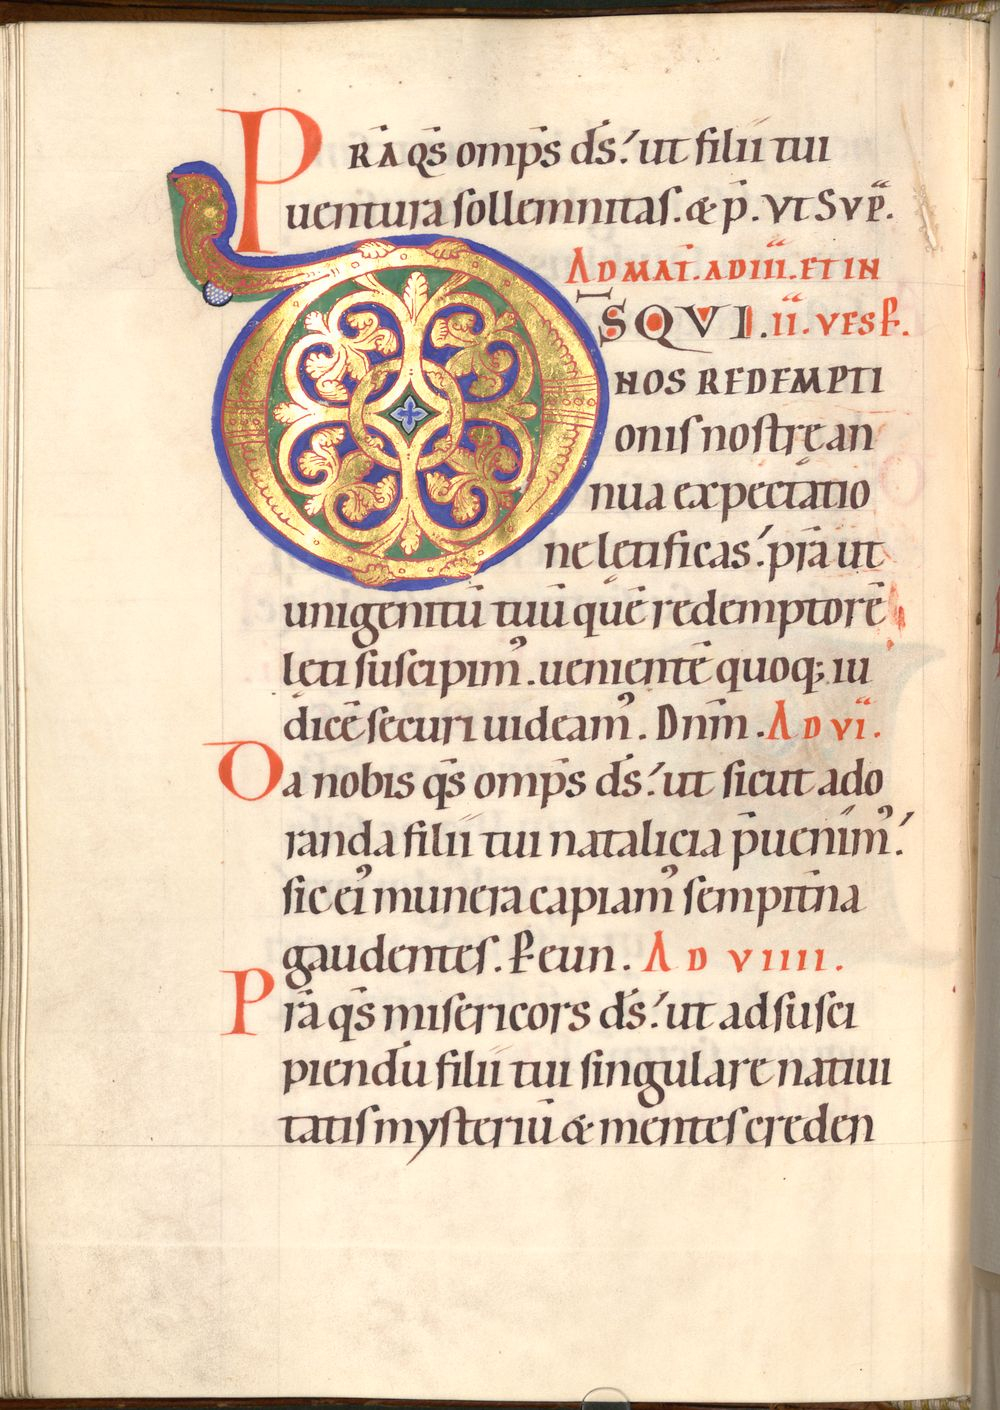 P RA QS omps ds. ut filii tui
uentura sollemnitas. & p. VT SVP.
AD MAT. AD III. ET IN
D S QVI. II. VESP.
NOS REDEMPTI
onis nostrę an
nua expectatio
ne lętificas. pra ut
unigenitū tuū quē redemptorē
lęti suscipim᾽. uenientē quoq; iu
dicē securi uideam᾽. Dnm. AD VI.
Da nobis qs omps ds. ut sicut ado
randa filii tui natalicia p̄uenim᾽.
sic ei᾽ munera capiam᾽ sempit̄na
gaudentes. P eun. AD VIIII.
Pra qs misericors ds. ut ad susci
piendū filii tui singulare natiui
tatis mysteriū & mentes creden